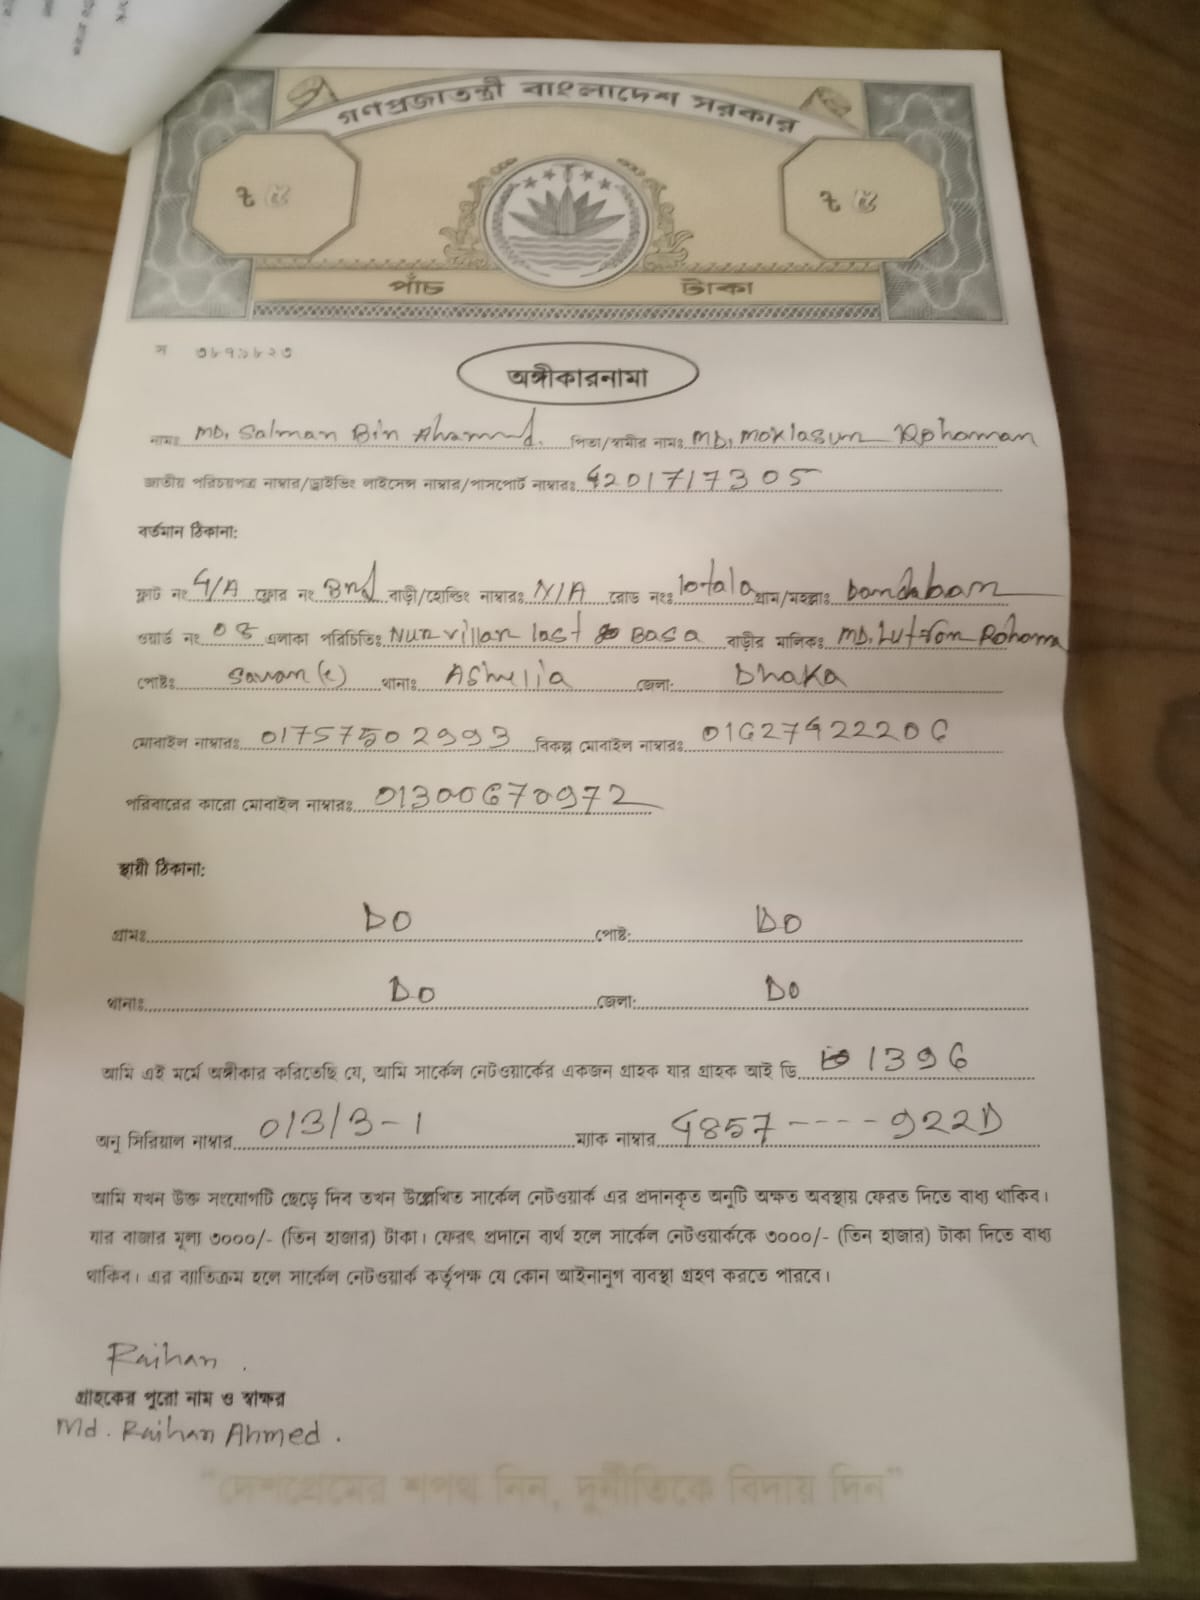 গণপ্রজাতন্ত্রী বাংলাদেশ সরকার
৳ ৫ ৳ ৫
পাঁচ টাকা
স ৩৮৭১৮২৩
অঙ্গীকারনামা
নামঃ MD. Salman Bin Ahammed. পিতা/স্বামীর নামঃ MD. Moklasun Rohoman
জাতীয় পরিচয়পত্র নাম্বার/ড্রাইভিং লাইসেন্স নাম্বার/পাসপোর্ট নাম্বারঃ 4201717305
বর্তমান ঠিকানা:
ফ্লাট নং 4/A ফ্লোর নং বাড়ী/হোল্ডিং নাম্বারঃ N/A রোড নংঃ গ্রাম/মহল্লাঃ
ওয়ার্ড নং এলাকা পরিচিতিঃ last Basa বাড়ীর মালিকঃ MD. Rohoma
পোষ্টঃ থানাঃ Ashulia জেলা: Dhaka
মোবাইল নাম্বারঃ 01757502993 বিকল্প মোবাইল নাম্বারঃ 01627422206
পরিবারের কারো মোবাইল নাম্বারঃ 01300670972
স্থায়ী ঠিকানা:
গ্রামঃ DO পোষ্ট: DO
থানাঃ DO জেলা: DO
আমি এই মর্মে অঙ্গীকার করিতেছি যে, আমি সার্কেল নেটওয়ার্কের একজন গ্রাহক যার গ্রাহক আই ডি 1396
অনু সিরিয়াল নাম্বার 0/3/3-1 ম্যাক নাম্বার 4857----922D
আমি যখন উক্ত সংযোগটি ছেড়ে দিব তখন উল্লেখিত সার্কেল নেটওয়ার্ক এর প্রদানকৃত অনুটি অক্ষত অবস্থায় ফেরত দিতে বাধ্য থাকিব।
যার বাজার মূল্য ৩০০০/- (তিন হাজার) টাকা। ফেরৎ প্রদানে ব্যর্থ হলে সার্কেল নেটওয়ার্ককে ৩০০০/- (তিন হাজার) টাকা দিতে বাধ্য
থাকিব। এর ব্যাতিক্রম হলে সার্কেল নেটওয়ার্ক কর্তৃপক্ষ যে কোন আইনানুগ ব্যবস্থা গ্রহণ করতে পারবে।
Raihan.
গ্রাহকের পুরো নাম ও স্বাক্ষর
Md. Raihan Ahmed.
"দেশপ্রেমের শপথ নিন, দুর্নীতিকে বিদায় দিন"